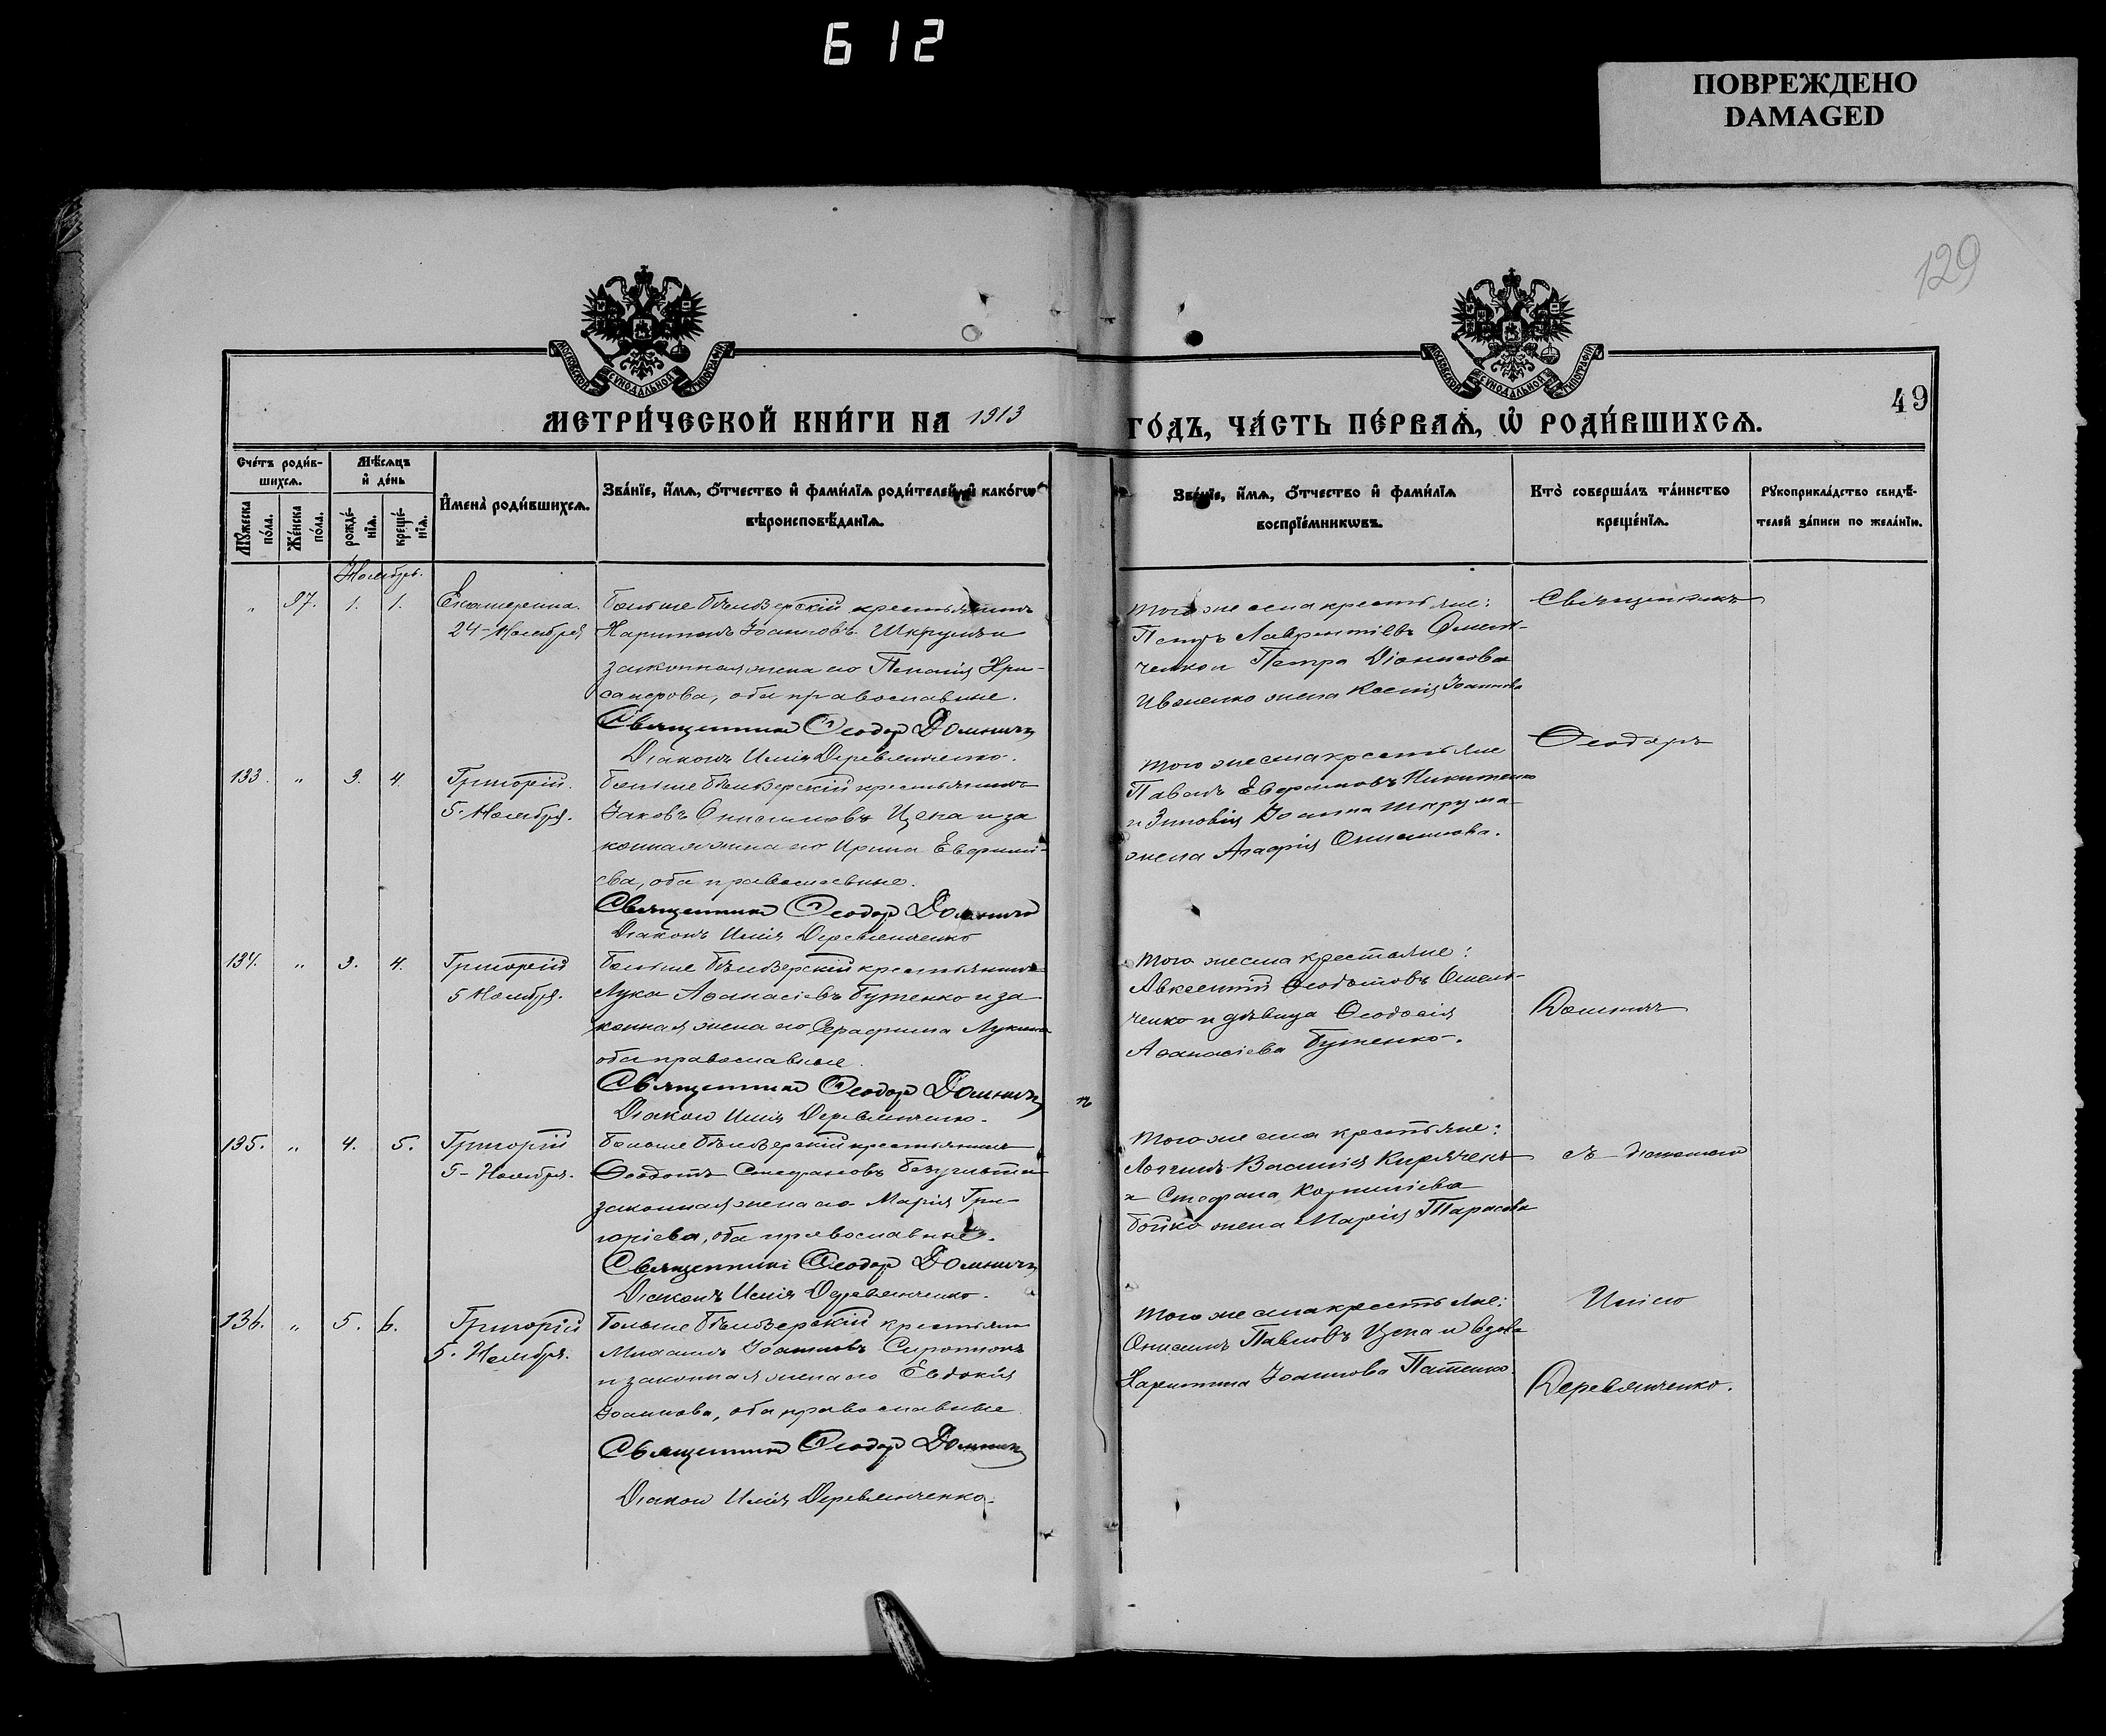 612
ПОВРЕЖДЕНО
DAMAGED
129
МОСКОВСКОЙ СѴНОДАЛЬНОЙ ТИПОГРАФІИ
МОСКОВСКОЙ СѴНОДАЛЬНОЙ ТИПОГРАФІИ
49
МЕТРИ́ЧЕСКОЙ КНИ́ГИ НА 1913
ГО́ДЪ, ЧА́СТЬ ПЕ́РВАѦ, Ѡ҆ РОДИ́ВШИХСѦ.
Сче́тъ роди́в-
шихсѧ.
Мѣ́сѧцъ
и҆ де́нь
Мꙋ́жеска по́ла.
Же́нска по́ла.
рожде́-нїѧ.
креще́-нїѧ.
И҆мена̀ роди́вшихсѧ.
Зва́нїе, и҆́мѧ, ѻ҆́тчество и҆ фами́лїѧ роди́телей, и҆ како́гѡ
вѣроисповѣ́данїѧ.
Зва́нїе, и҆́мѧ, ѻ҆́тчество и҆ фами́лїѧ
воспрїе́мникѡвъ.
Кто̀ соверша́лъ та́инство
креще́нїѧ.
Рꙋкоприкла́дство свидѣ́-
телей за́писи по жела́нїю.
Ноябрь.
" 97. 1. 1. Екатерина.
24 Ноября
Больше Бѣлозерскій крестьянинъ
Харитонъ Іоанновъ Шкрумъ и
законная жена его Пелагія Хри-
санфова, оба православные.
Священникъ Ѳеодоръ Доминич
Діаконъ Илія Деревянченко.
того же села крестьяне:
Петръ Лаврентіевъ Омель-
ченко и Петра Діонисова
Иваненко жена Ксенія Іоаннова
Священникъ
133. " 3. 4. Григорій.
5. Ноября.
Больше Бѣлозерскій крестьянинъ
Іаковъ Онисимовъ Цепа и за
конная жена его Ирина Евфимі-
ева, оба православные.
Священникъ Ѳеодор
Діаконъ Илія Деревянченко
того же села крестьяне
Павелъ Никитенко
жена Агафія Онисимова.
Ѳеодоръ
134. " 3. 4. Григорій
5 Ноября.
Больше Бѣлозерскій крестьянинъ
Лука Аѳанасіевъ Бутенко и за
конная жена его Серафима Лукина
оба православные.
Священникъ Ѳеодор
Діаконъ Илія Деревянченко.
того же села крестьяне:
Авксентій Ѳеодотовъ Омель-
ченко и дѣвица Ѳеодосія
Аѳанасіева Бутенко.
135. " 4. 5. Григорій
5 - Ноября.
Больше Бѣлозерскій крестьянинъ
Ѳеодотъ Стефановъ
законная жена его Марія Гри-
горіева, оба православные.
Священникъ Ѳеодор
Діаконъ Илія Деревянченко.
того же села крестьяне:
и Стефана Корниліева
Бойко жена Марія Тарасова
съ діакономъ
136. " 5. 6. Григорій
5. Ноября.
Больше Бѣлозерскій крестьян
Михаилъ Іоанновъ
и законная жена его Евдокія
Іоаннова, оба православные
Священникъ Ѳеодор
Діакон Илія Деревянченко.
того же села крестьяне:
Онисимъ Павловъ Цепа и вдова
Харитина Іоаннова
Иліею
Деревянченко.